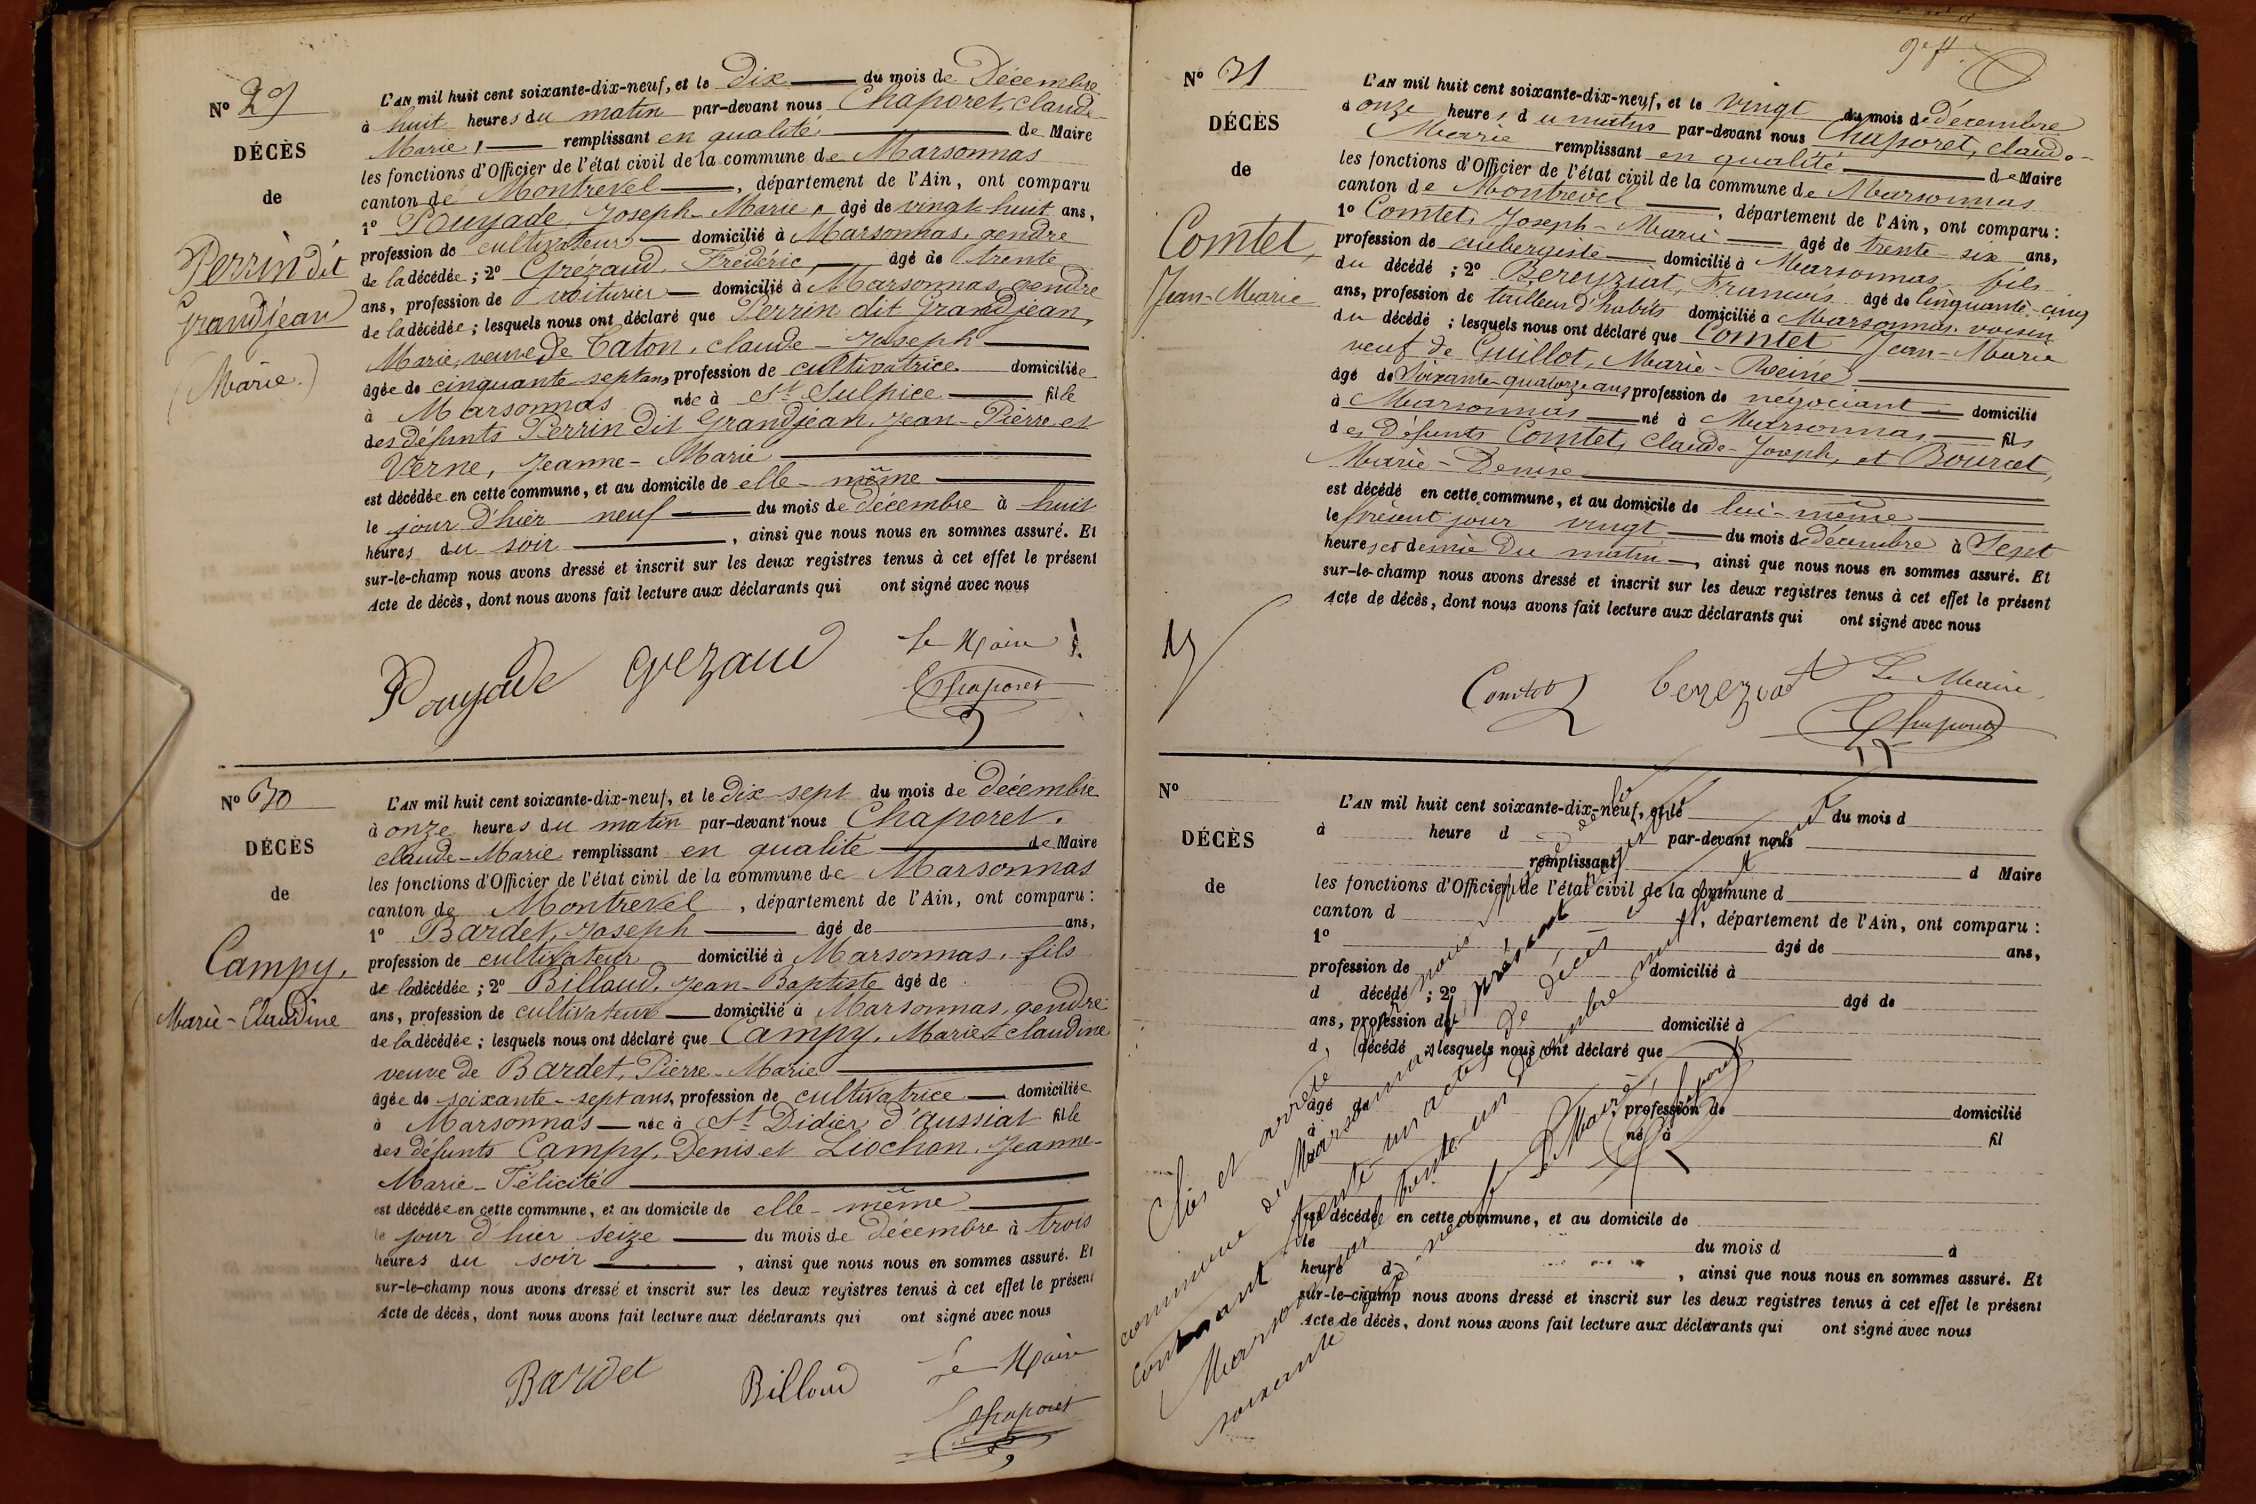 N° 29
DÉCÈS
de
Perrin dit
Grandjean
(Marie.)
L'AN mil huit cent soixante-dix-neuf, et le dix du mois de Décembre
à huit heures du matin par-devant nous Chaporet, claude-
Marie, remplissant en qualité de Maire
les fonctions d'Officier de l'état civil de la commune de Marsonnas
canton de Montrevel, département de l'Ain, ont comparu
1° Pouyade, Joseph-Marie, âgé de vingt-huit ans,
profession de cultivateur domicilié à Marsonnas, gendre
de la décédée ; 2° Grézaud, Frédéric, âgé de trente
ans, profession de voiturier domicilié à Marsonnas, gendre
de la décédée ; lesquels nous ont déclaré que Perrin dit Grandjean,
Marie, veuve de Caton, claude-Joseph
âgée de cinquante-sept ans, profession de cultivatrice domiciliée
à Marsonnas née à St Sulpice fille
des défunts Perrin dit Grandjean, Jean-Pierre et
Verne, Jeanne-Marie
est décédée en cette commune, et au domicile de elle-même
le jour d'hier neuf du mois de décembre à huit
heures du soir, ainsi que nous nous en sommes assuré. Et
sur-le-champ nous avons dressé et inscrit sur les deux registres tenus à cet effet le présent
Acte de décès, dont nous avons fait lecture aux déclarants qui ont signé avec nous
Pouyade Grezaud Le Maire
Chaporet
N° 30
DÉCÈS
de
Campy,
Marie-Claudine
L'AN mil huit cent soixante-dix-neuf, et le dix-sept du mois de Décembre
à onze heures du matin par-devant nous Chaporet,
claude-Marie remplissant en qualité de Maire
les fonctions d'Officier de l'état civil de la commune de Marsonnas
canton de Montrevel, département de l'Ain, ont comparu :
1° Bardet, Joseph âgé de ans,
profession de cultivateur domicilié à Marsonnas, fils
de la décédée ; 2° Billoud, Jean-Baptiste âgé de
ans, profession de cultivateur domicilié à Marsonnas, gendre
de la décédée ; lesquels nous ont déclaré que Campy, Marie claudine
veuve de Bardet, Pierre-Marie
âgée de soixante-sept ans, profession de cultivatrice domiciliée
à Marsonnas née à St Didier d'aussiat fille
des défunts Campy, Denis et Liochon, Jeanne-
Marie-Félicité
est décédée en cette commune, et au domicile de elle-même
le jour d'hier seize du mois de décembre à trois
heures du soir, ainsi que nous nous en sommes assuré. Et
sur-le-champ nous avons dressé et inscrit sur les deux registres tenus à cet effet le présent
Acte de décès, dont nous avons fait lecture aux déclarants qui ont signé avec nous
Bardet Billoud Le Maire
Chaporet
N° 31
DÉCÈS
de
Comtet,
Jean-Marie
L'AN mil huit cent soixante-dix-neuf, et le vingt du mois de décembre
à onze heures du matin par-devant nous Chaporet, claude-
Marie remplissant en qualité de Maire
les fonctions d'Officier de l'état civil de la commune de Marsonnas
canton de Montrevel, département de l'Ain, ont comparu :
1° Comtet, Joseph-Marie âgé de trente-six ans,
profession de aubergiste domicilié à Marsonnas, fils
du décédé ; 2° Bereyziat, Francois âgé de cinquante-cinq
ans, profession de tailleur d'habits domicilié à Marsonnas, voisin
du décédé ; lesquels nous ont déclaré que Comtet Jean-Marie
veuf de Guillot, Marie-Reine
âgé de soixante-quatorze ans, profession de négociant domicilié
à Marsonnas né à Marsonnas fils
des défunts Comtet, claude-Joseph, et Bourcet,
Marie-Denise
est décédé en cette commune, et au domicile de lui-même
le présent jour vingt du mois de décembre à sept
heures et demie du matin, ainsi que nous nous en sommes assuré. Et
sur-le-champ nous avons dressé et inscrit sur les deux registres tenus à cet effet le présent
Acte de décès, dont nous avons fait lecture aux déclarants qui ont signé avec nous
Comtet berezeiat Le Maire,
Chaporet
N°
DÉCÈS
de
L'AN mil huit cent soixante-dix-neuf, et le du mois d
à heure d par-devant nous
remplissant d Maire
les fonctions d'Officier de l'état civil de la commune d
canton d, département de l'Ain, ont comparu :
1° âgé de ans,
profession de domicilié à
d décédé ; 2° âgé de
ans, profession de domicilié à
d décédé ; lesquels nous ont déclaré que
âgé de profession de domicilié
à né à fil
est décédé en cette commune, et au domicile de
le du mois d à
heure d, ainsi que nous nous en sommes assuré. Et
sur-le-champ nous avons dressé et inscrit sur les deux registres tenus à cet effet le présent
Acte de décès, dont nous avons fait lecture aux déclarants qui ont signé avec nous
Clos et arrêté par nous
commune de Marsonnas le présent
contenant trente un actes de décès
Marsonnas le trente-un décembre mil huit cent
soixante-dix-neuf
Le Maire
Chaporet